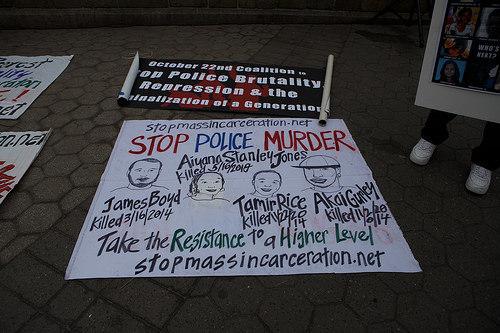 October 22nd Coalition to
op Police Brutality
Repression & the
inalization of a Generation
stopmassincarceration.net
STOP POLICE MURDER
Aiyana Stanley Jones
Killed 5/16/2010
James Boyd
Killed 3/16/2014
Tamir Rice
Akai Gurley
Take the Resistance to a Higher Level
stopmassincarceration.net
WHO'S
NEXT?